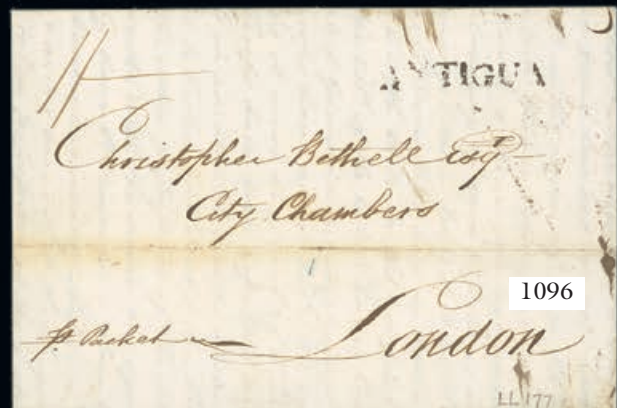 1/-
ANTIGUA
Christopher Bethell Esqr
City Chambers
1096
pr Packet
London
LL 177